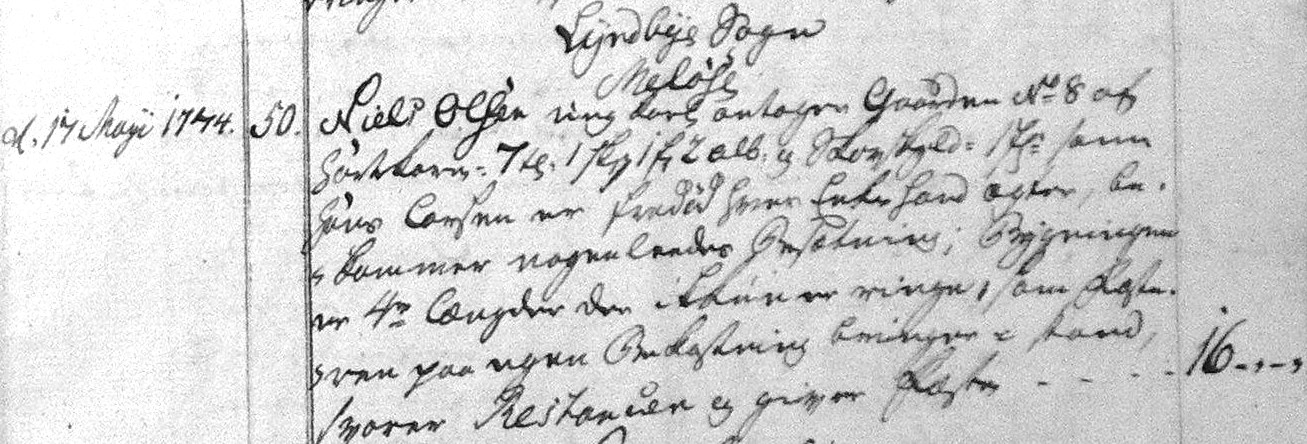 Lyndbÿe Sogn
Meløse
d. 17 Maÿi 1744. 50. Niels Olsen ung karl antager Gaarden No 8 af
Hartkorn = 7 td. 1 skp 1 f 2 alb. og Skovskyld = 1 skp som
Hans Larsen er fradød hvis Enke hand ægter, be-
kommer nogenledes Besætning; Bygningen
er 4re Længder der ikkun er ringe, som Fæste-
ren paa egen Bekostning bringer i stand,
svarer Restancen og giver Fæste - - - - 16 - , - ,